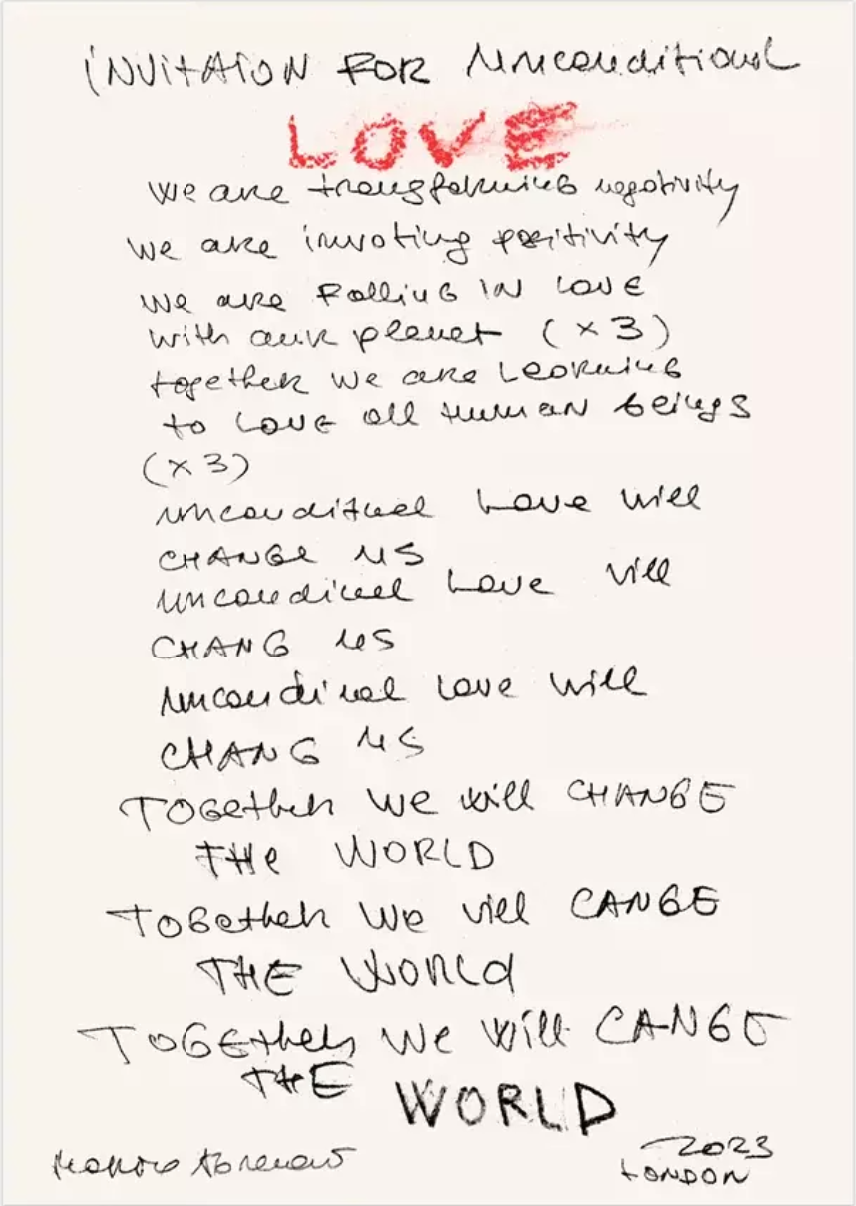 iNVitAiON FOR Unconditional
LOVE
We are transforming negativity
We are invoting positivity
We are Falling IN LOVE
with our planet (x3)
together we are Learning
to LOVE all human beings
(x3)
unconditinel Love will
CHANGe US
uncondinel Love vill
CHANG US
uncondinal Love will
CHANG US
TOGether We will CHANGE
THe WORLD
TOGether We vill CANGE
THE WORLd
TOGEther We will CANGE
THE WORLD
Marina Abramović
2023
LONDON